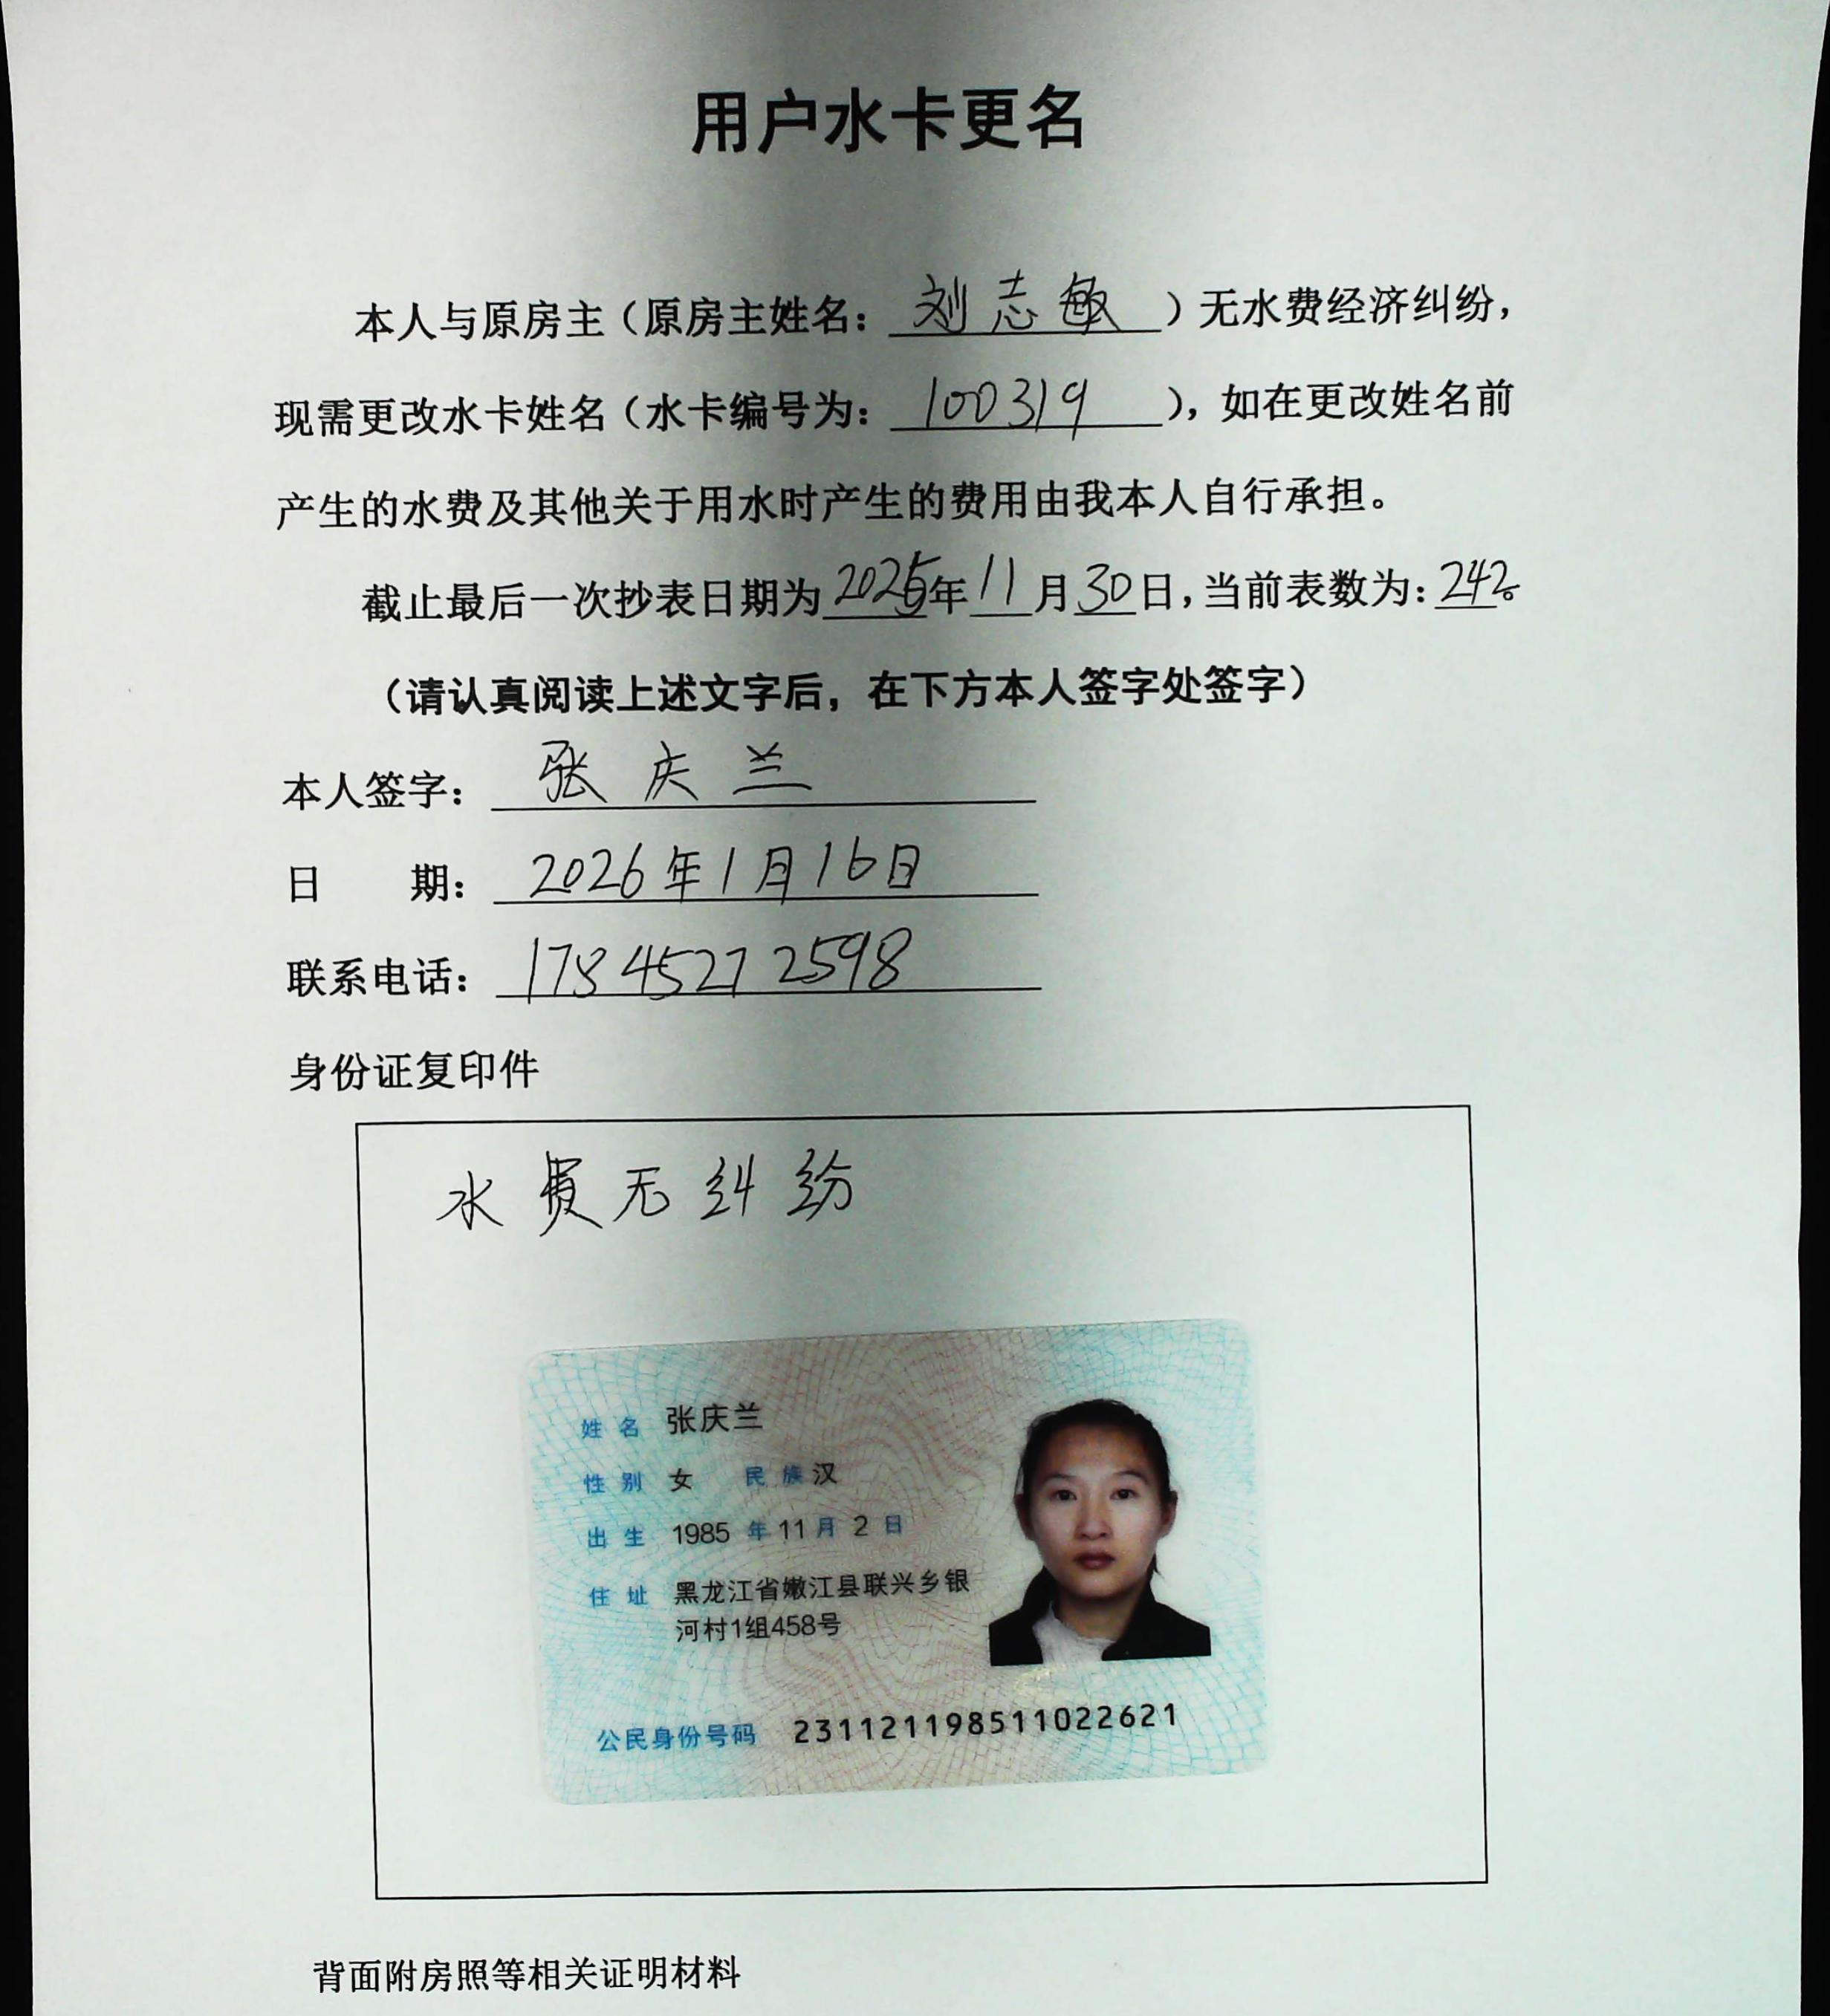 用户水卡更名
本人与原房主（原房主姓名：刘志敏）无水费经济纠纷，
现需更改水卡姓名（水卡编号为：100319），如在更改姓名前
产生的水费及其他关于用水时产生的费用由我本人自行承担。
截止最后一次抄表日期为2025年11月30日，当前表数为：242。
（请认真阅读上述文字后，在下方本人签字处签字）
本人签字：张庆兰
日期：2026年1月16日
联系电话：17845272598
身份证复印件
水费无纠纷
姓名 张庆兰
性别 女 民族 汉
出生 1985年11月2日
住址 黑龙江省嫩江县联兴乡银
河村1组458号
公民身份号码 231121198511022621
背面附房照等相关证明材料